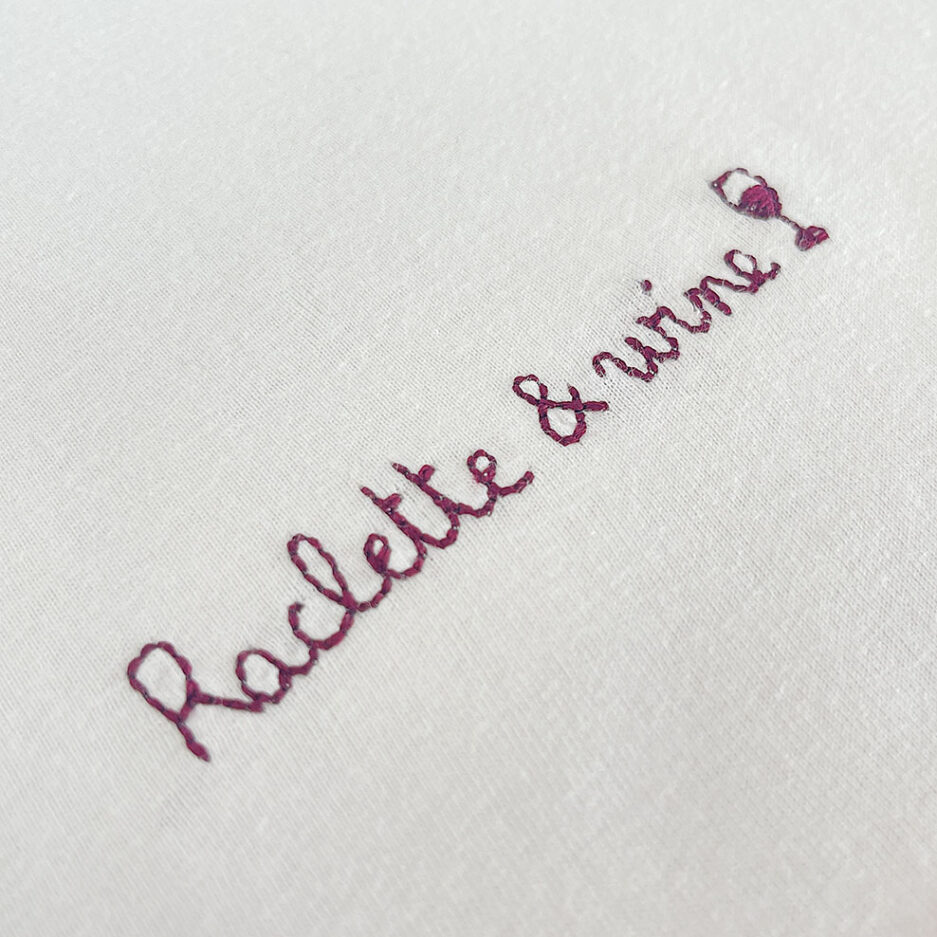 Raclette & wine